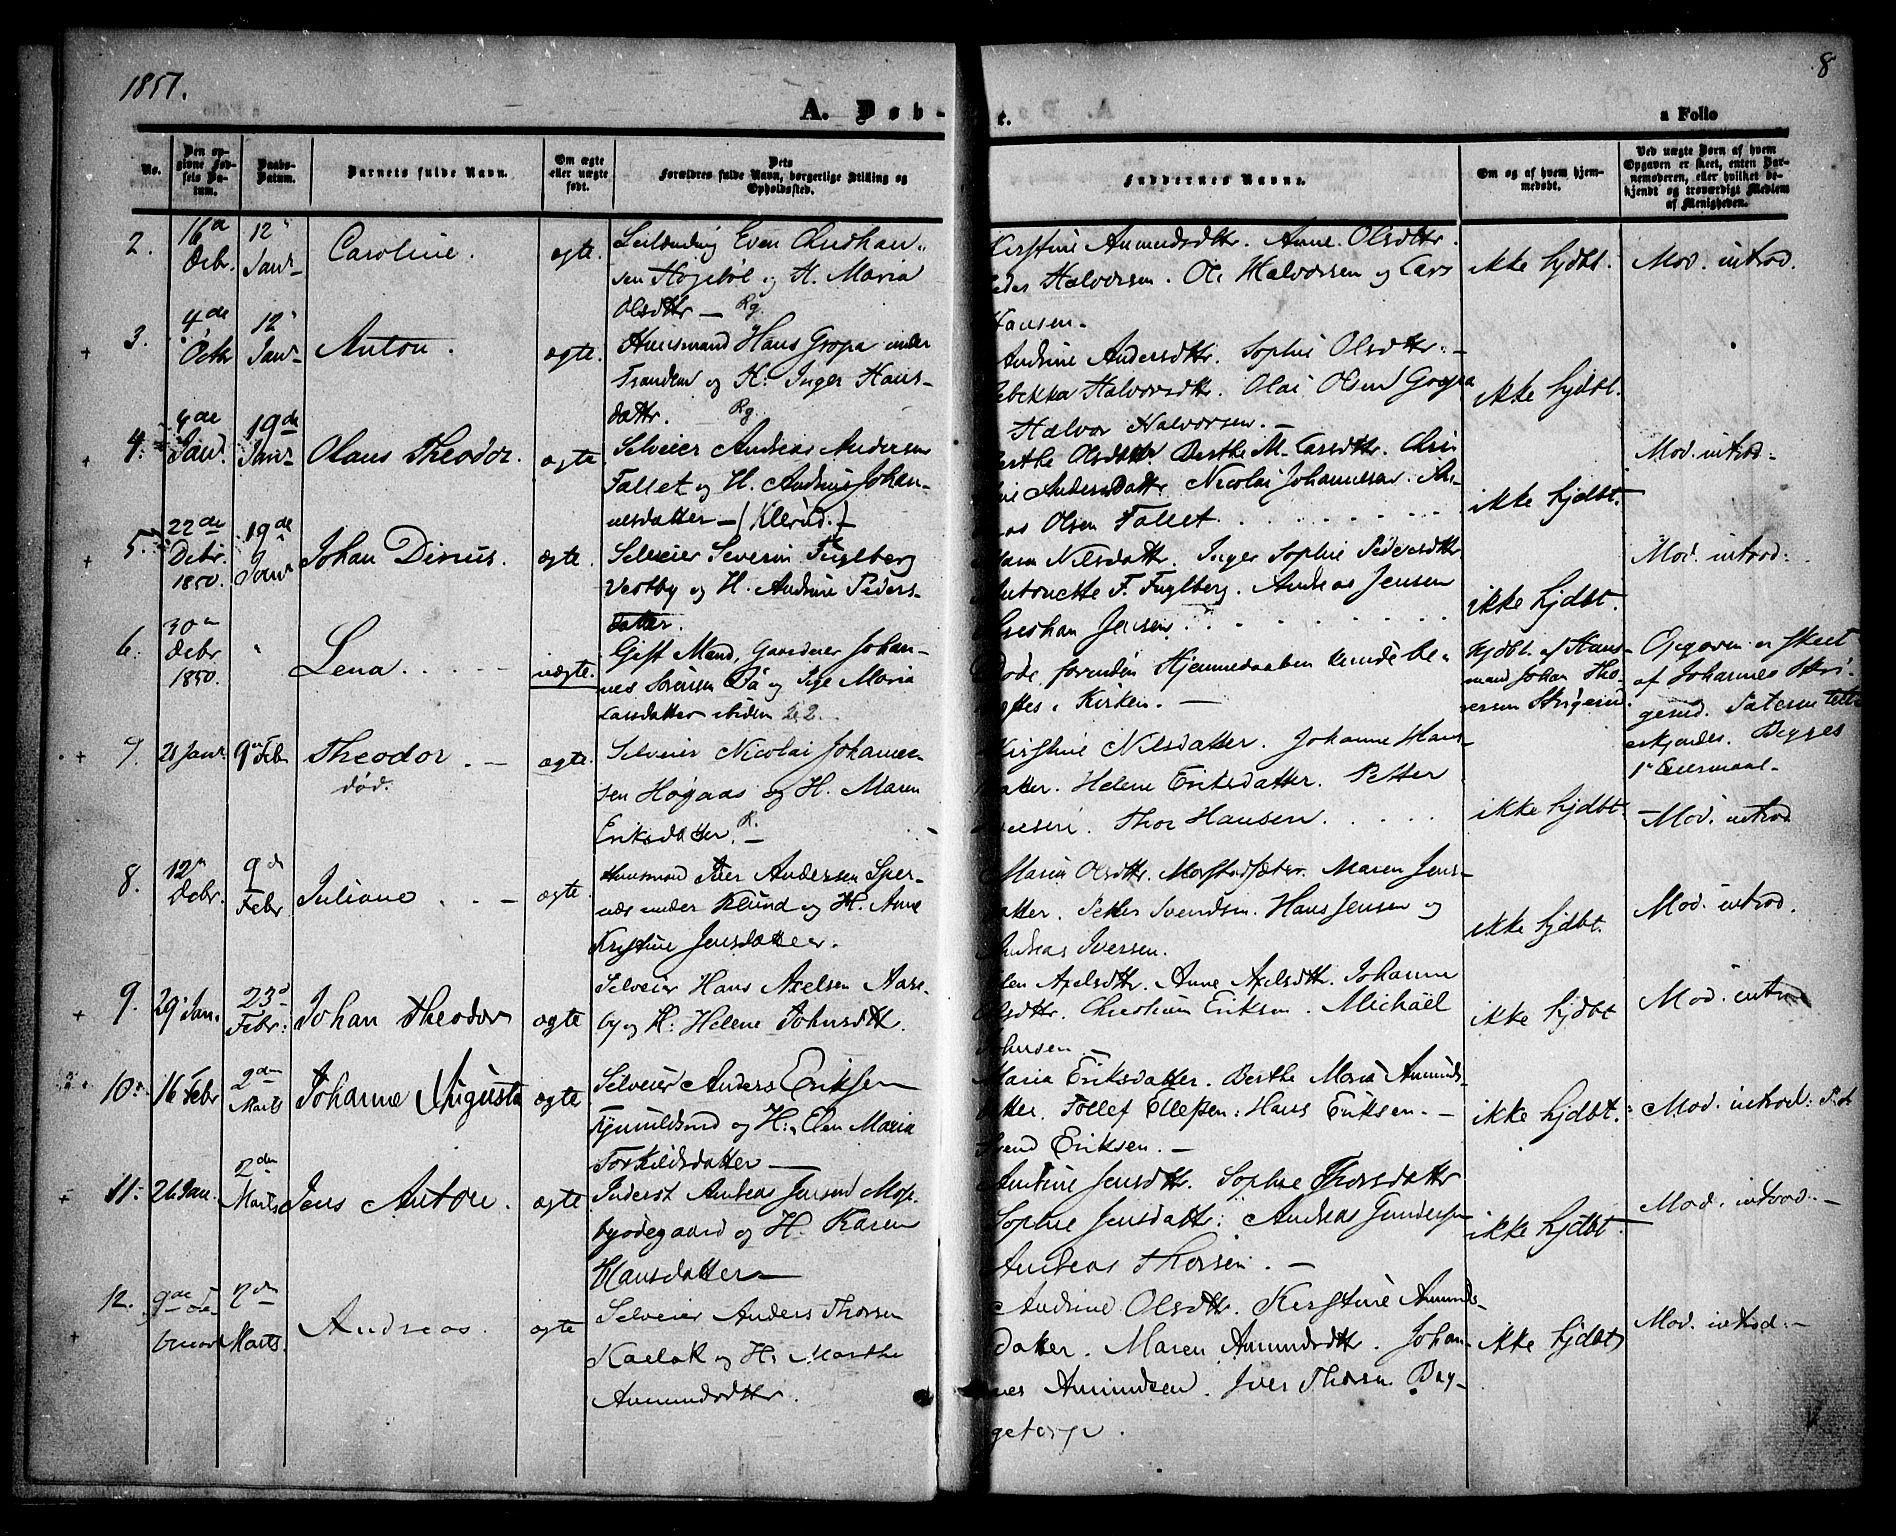 1851.
8
A. Døb-
t.
a Folio
No.
Den op-
givne Fød-
sels Da-
tum.
Daabs-
Datum.
Barnets fulde Navn.
Om ægte
eller uægte
født.
Dets
Forældres fulde Navn, borgerlige Stilling og
Opholdssted.
Faddernes Navne.
Om og af hvem hjem-
medøbt.
Ved uægte Børn af hvem
Opgaven er skeet, enten Bar-
nemoderen, eller hvilket be-
kjendt og troværdigt Medlem
af Menigheden.
2.
16de
Debr.
12
Janr
Caroline.
ægte.
Leilænding Even Christian-
sen Højebøl og H. Maria
Olsdttr — Rg.
Kirstine Amundsdttr. Anne Olsdttr.
Peder Halvorsen. Ole Halvorsen og Lars
Hansen.
ikke hjdbt.
Mod. introd.
3.
4de
Octbr
12
Janr
Anton.
ægte.
Huusmand Hans Gropa under
Franden og H: Inger Hans-
datter. Rg.
Andrine Andersdttr. Sophie Olsdttr. —
Rebekka Halvorsdttr. Olai Olsen Gropa
Halvor Halvorsen. —
ikke hjdbt.
4.
4de
Janr.
19de
Janr
Olaus Theodor.
ægte
Selveier Andreas Andersen
Follet og H. Andrine Johan-
nesdatter — (Klerud.)
Berthe Olsdttr. Berthe M. Larsdttr. Chri
Andersdatter. Nicolai Johannessen.
Olsen Follet.
ikke hjdbt.
Mod. introd.
5.
22de
Debr
1850.
19de
Janr
Johan Dinus.
ægte.
Selveier Severin Fuglberg
Vestby og H. Andrine Peders-
datter.
Maren Nilsdattr. Inger Sophie Pedersdttr
Antonette F. Fuglberg. Andreas Jensen
Christian Jensen.
ikke hjdbt.
Mod. introd.
6.
30te
Debr
1850.
"
Lena
uægte.
Gift Mand, Gaardener Johan-
nes Sørensen Daa og Pige Maria
Larsdatter ibiden
Døde forinden Hjemmedaaben kunde be-
 i Kirken. —
Hjdbt. af Huus-
mand Johan Tho-
resen Strigerud.
Opgaven er skeet
af Johannes Stri-
gerud. Pateren
erkjender. Begges
1e Leiermaal.
7.
21 Janr
9de Febr
Theodor. —
død.
ægte.
Selveier Nicolai Johannes-
sen Høgaas og H. Maren
Eriksdatter. R. —
Kirstine Nilsdatter. Johanne Hans-
datter. Helene Eriksdatter. Petter
 Thor Hansen.
ikke hjdbt.
Mod. introd.
8.
12te
Debr.
9de
Febr
Juliane
ægte.
Huusmand Iver Andersen Sper-
 under Klund og H. Anne
Kristine Jensdatter.
Maria Olsdttr. Morstadsæter. Maren Jens-
datter. Petter Svendsen. Hans Jensen og
Andreas Iversen.
ikke hjdbt.
Mod. introd.
9.
29. Jan.
23de
Febr.
Johan Theodor
ægte
Selveier Hans Axelsen Aase-
by og H: Helene Johnsdttr.
Ellen Axelsdttr. Anne Axelsdttr. Johanne
Olsdttr. Christian Eriksen. Michäel
Johnsen
ikke hjdbt
Mod. introd
10.
16 Febr
2den
Marts
Johanne Augusta
ægte
Selveier Anders Eriksen
 og H: Elen Maria
Torkildsdatter —
Maria Eriksdatter. Berthe Maria Amunds-
datter. Follef Ellefsen. Hans Eriksen. —
Svend Eriksen. —
ikke hjdbt.
Mod. introd.
11.
26 Jan.
2den
Marts
Jens Anton.
ægte
Inderst Andreas Jensen Mos-
byødegaard og H. Karen
Hansdatter —
Antine Jensdttr. Sophie Thorsdattr
Sophie Jensdattr. Andreas Gundersen
Andreas Thorsen. —
ikke hjdbt.
Mod. introd. —
12.
9de
2den
Marts.
Andreas.
ægte
Selveier Anders Thorsen
Kaelak og H. Marthe
Amundsdttr.
Andrine Olsdttr. Kirstine Amunds-
datter. Maren Amundsdttr. Johan-
nes Amundsen. Iver Thorsen Bay-
getorp.
ikke hjdbt
Mod. introd. —